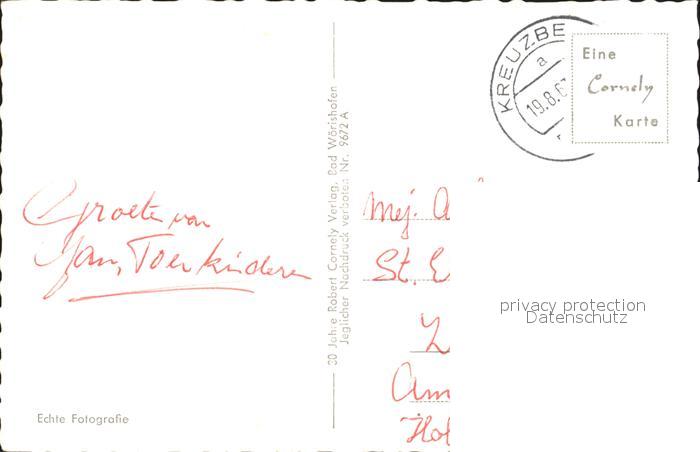 KREUZBE
a
19.8.6
Eine
Cornely
Karte
Groeten van
Jan, Toer kinderen
30 Jahre Robert Cornely Verlag, Bad Wörishofen
Jeglicher Nachdruck verboten Nr. 9672 A
Mej. A
St. E
Z
Am
Hol
privacy protection
Datenschutz
Echte Fotografie